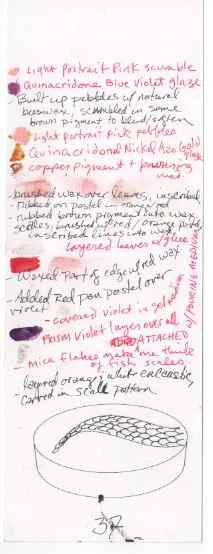 Light Portrait Pink scumble
Quinacridone Blue Violet glaze
- Built up pebbles w/ natural
beeswax, scumbled in some
brown pigment to blend/soften
Light portrait pink pebbles
Quinacridone Nickel Azo Gold
glaze
copper pigment + pouring
med.
- brushed wax over leaves, inscribed,
- rubbed on pastel in orange/red
- rubbed brown pigment into wax
scales, brushed w/ red/orange pastel,
inscribed lines into wax
layered leaves w/ glue
- Waxed Part of edge w/ red wax
- Added Red Pan pastel over
violet
- covered violet in gel medium
PRISM Violet layer over all
ATTACHED
W/ POURING MEDIUM
- mica flakes make me think
of fish scales,
layered orange, white encaustic,
- carved in scale pattern
37